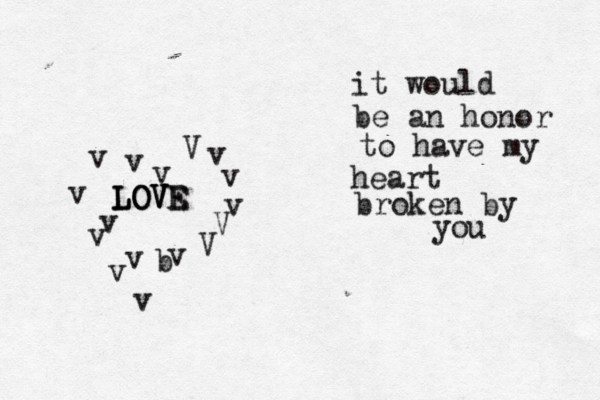 V v
v v v v
v LOVE
v v V
v V
v b v
v
v
it would
be an honor
to have my
heart
broken by
you